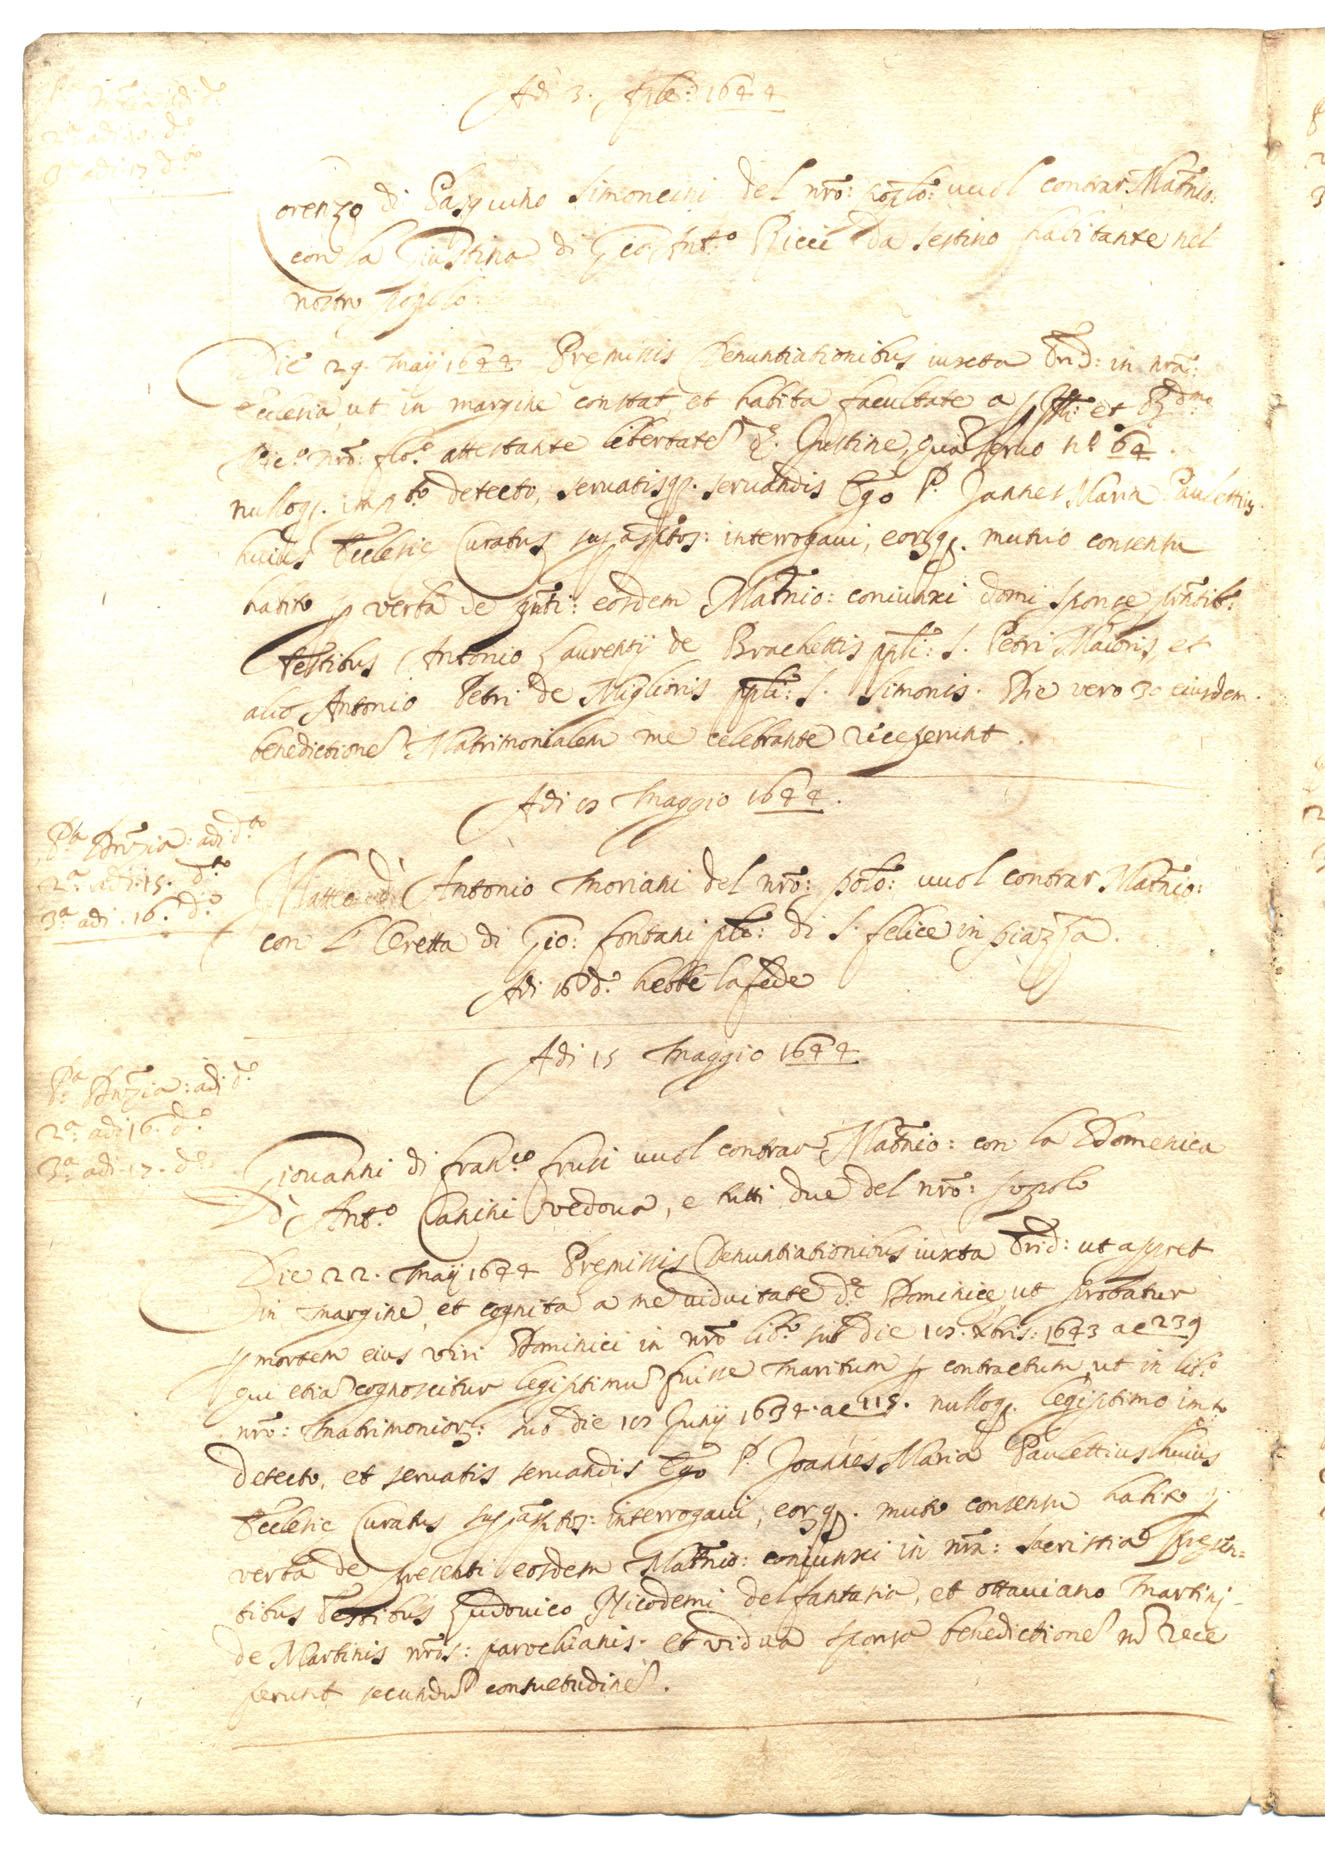 Adi 3. 1644
2.a adi 10. d.o
3.a adi 17 d.to
orenzo di Pasquino Simoncini del nro: poplo: vuol contrar Matrio:
con la Giustina di Gio: Ant.o Ricci da Sestino habitante nel
nostro Popolo.
Die 29. Maij 1644 Premissis Denuntiationibus iuxta Trid: in nra:
Ecclesia, ut in margine constat, et habita facultate a et R.dmo
attestante libertate d. Justine, qua servo n.o 64.
nulloq. imp.to detecto, servatisq. servandis Ego P. Joannes Maria Paulettius
huius Ecclesie Curatus interrogavi, eorq. mutuo consensu
habito p verba de pnti: eosdem Matrio: coniunxi domi sponse pntib:
testibus Antonio Laurentij de Brachettis ppli: S. Petri Maioris, et
alio Antonio Petri de Miglioris ppli: S. Simonis. Die vero 30 eiusdem
benedictione Matrimonialem me celebrante receperunt.
Adi 10 Maggio 1644.
P.a Dnzia: adi d.to
2.a adi 15. d.to
3.a adi 16. d.o
Matteo di Antonio Moriani del nro: polo: vuol contrar Matrio:
con L Cretta di Gio: fontani plo: di S. felice in piazza.
Adi 16 d.o hebbe la fede
Adi 15 Maggio 1644
P.a Dnzia: adi d.o
2.a adi 16. d.o
3.a adi 17. d.o
Giovanni di fran.co frusi vuol contrar Matrio: con la Domenica
di Ant.o Canini vedova, e tutti due del nro: popolo
Die 22. Maij 1644 Premissis Denuntiationibus iuxta Trid: ut appret
in margine, et cognita a me viduitate d.e Dominice, ut probatur
p mortem eius viri Dominici in nro lib.o sub die 10. Xbris: 1643 a c 239
qui etia cognoscitur legiptimu fuisse maritum p contractum, ut in lib.o
nro: Matrimonior: sub die 10 Junij 1634. a c 115. nulloq. legiptimo imp.to
detecto, et servatis servandis Ego P. Joannes Maria Paulettius huius
Ecclesie Curatus interrogavi, eorq. mutuo consensu habito p
verba de presenti eosdem Matrio: coniunxi in nra: sacristia presen=
tibus testibus Ludovico Nicodemi del fantasia, et Ottaviano Martini
de Martinis nris: parochianis. et vidua sponsa benedictione no rece
perunt secundu consuetudine.